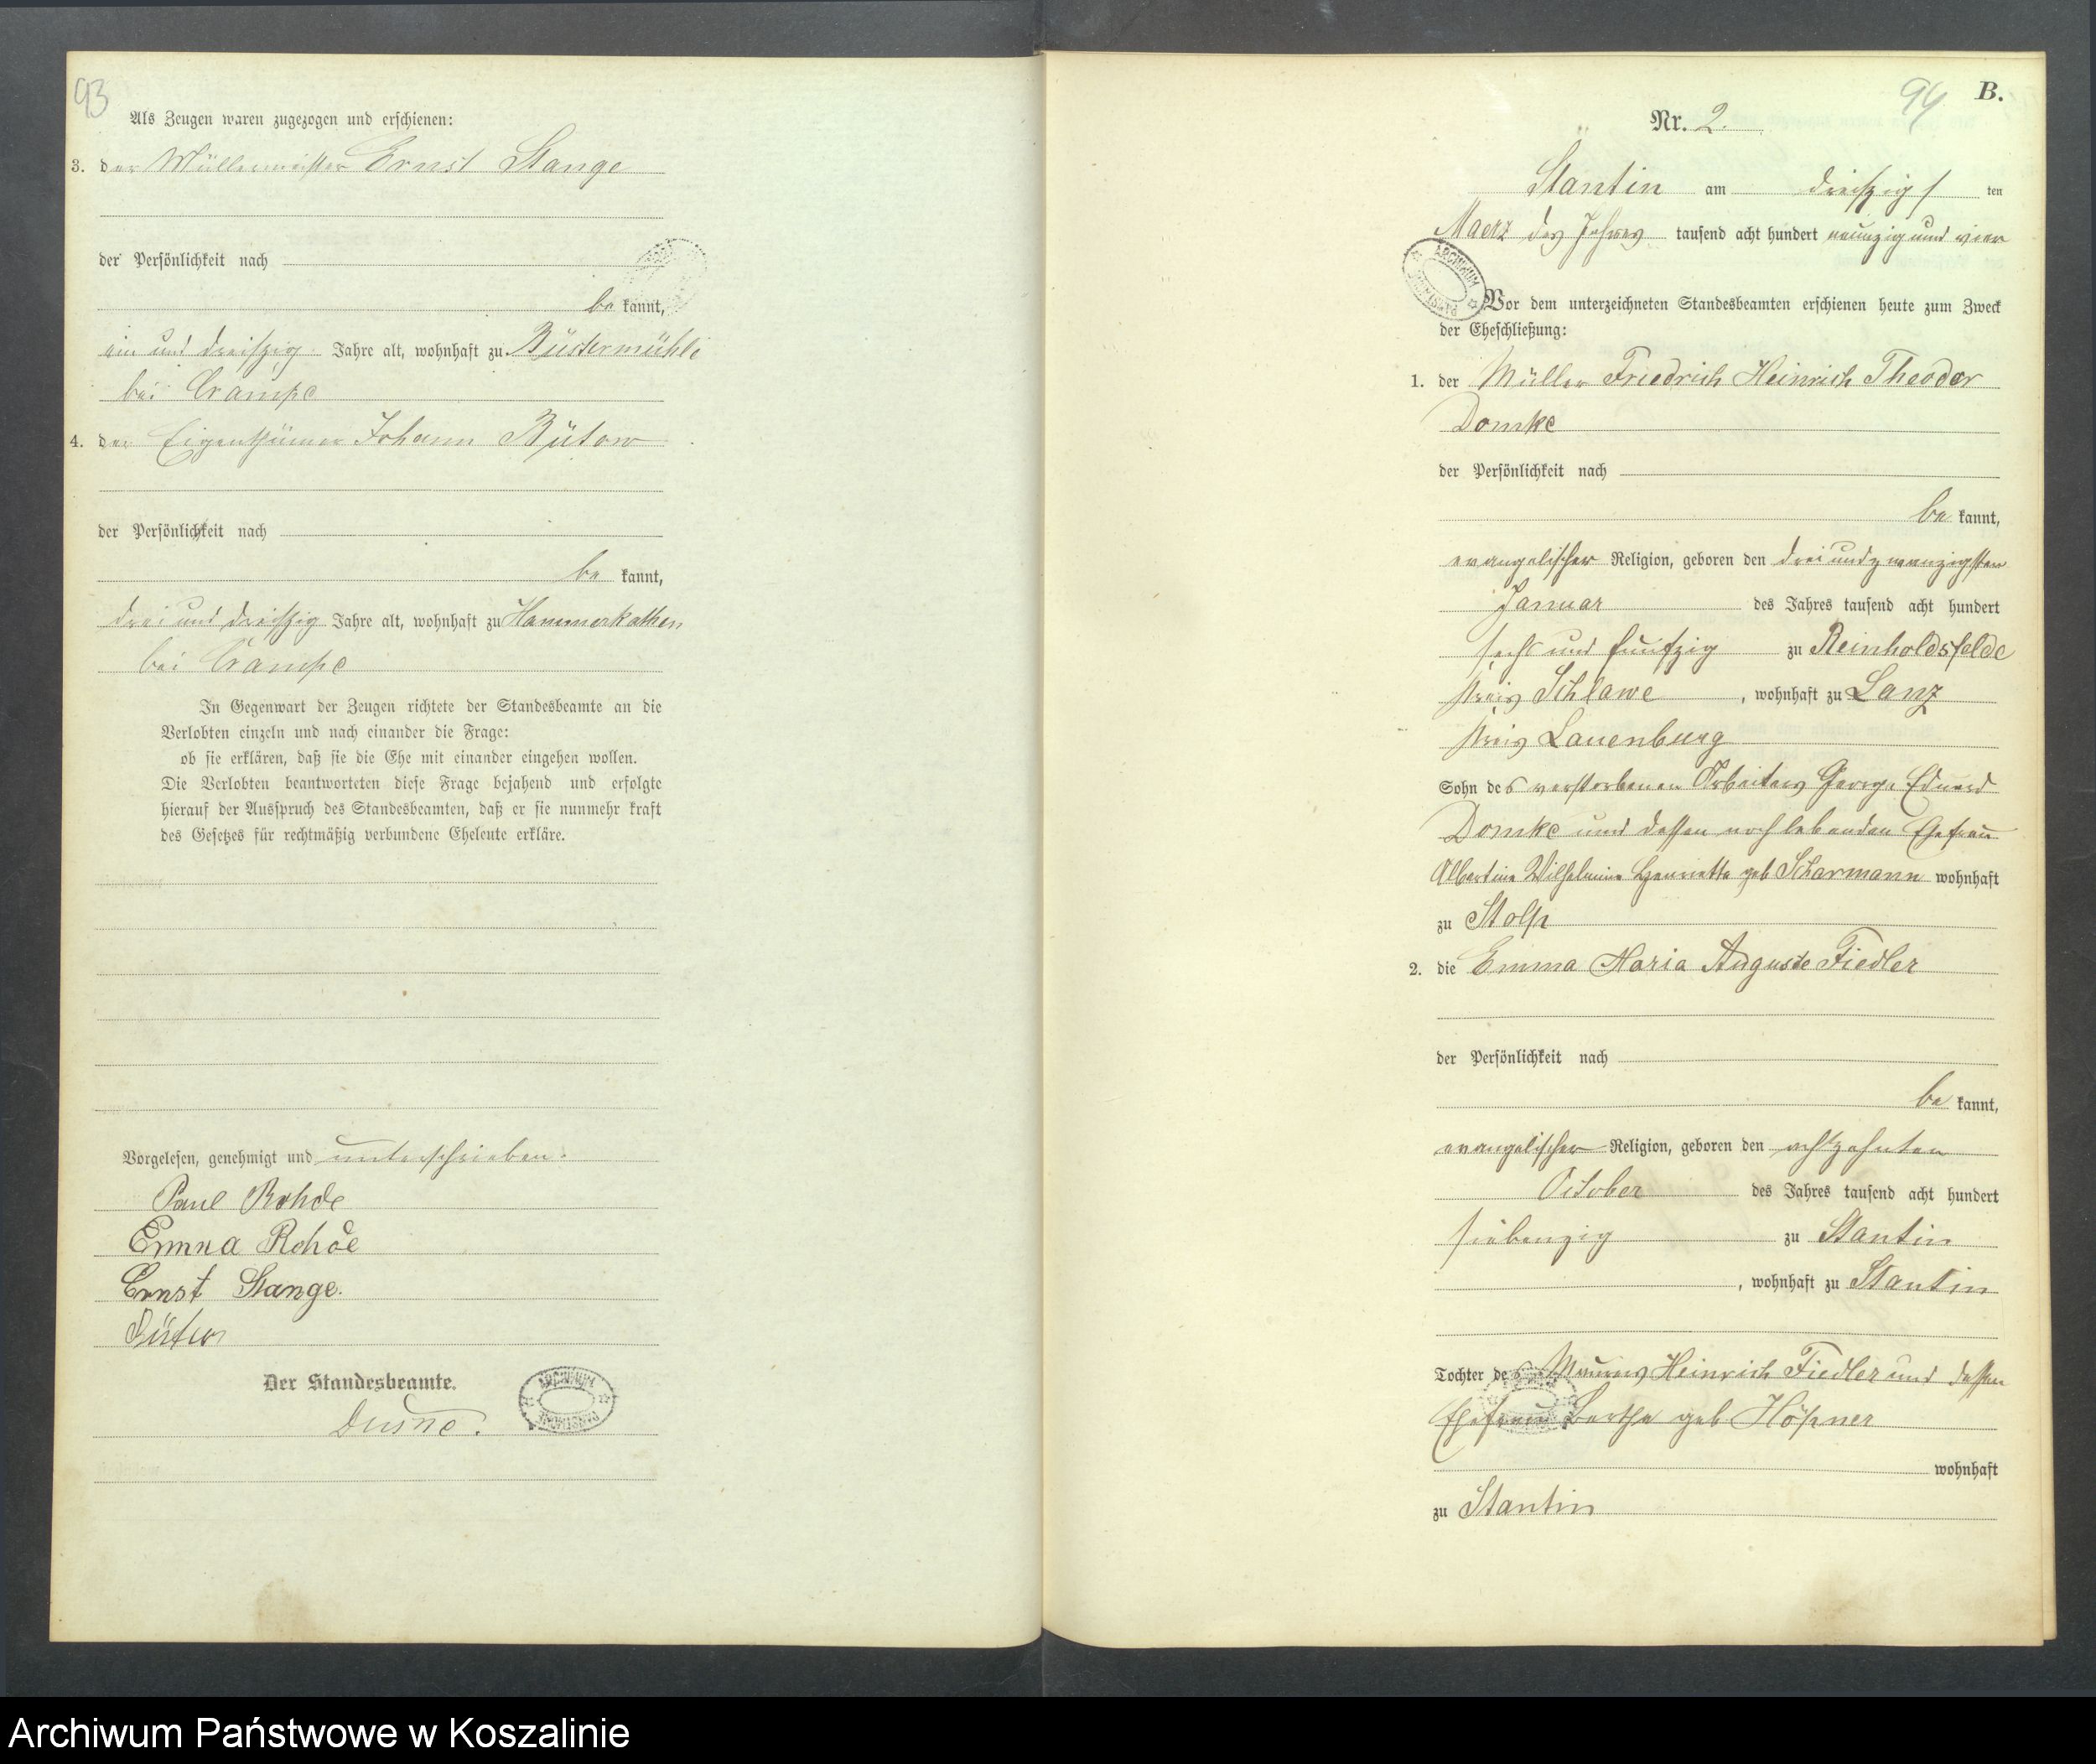 93
Als Zeugen waren zugezogen und erschienen:
3. der Müllermeister Ernst Stange
der Persönlichkeit nach
be kannt,
ein und dreiszig Jahre alt, wohnhaft zu Büstermühle
bei Crampe
4. der Eigenthümer Johann Bütow
der Persönlichkeit nach
be kannt,
drei und dreiszig Jahre alt, wohnhaft zu Hammerkathen
bei Crampe
In Gegenwart der Zeugen richtete der Standesbeamte an die
Verlobten einzeln und nach einander die Frage:
ob sie erklären, daß sie die Ehe mit einander eingehen wollen.
Die Verlobten beantworteten diese Frage bejahend und erfolgte
hierauf der Ausspruch des Standesbeamten, daß er sie nunmehr kraft
des Gesetzes für rechtmäßig verbundene Eheleute erkläre.
Vorgelesen, genehmigt und unterschrieben.
Paul Rohde
Emma Rohde
Ernst Stange.
Bütow
Der Standesbeamte.
ARCHIWUM PAŃSTWOWE
94
B.
Nr. 2.
Stantin am dreiszigs ten
Maerz des Jahres tausend acht hundert neunzig und vier
ARCHIWUM PAŃSTWOWE
Vor dem unterzeichneten Standesbeamten erschienen heute zum Zweck
der Eheschließung:
1. der Müller Friedrich Heinrich Theodor
Domke
der Persönlichkeit nach
be kannt,
evangelischer Religion, geboren den drei und zwanzigsten
Januar des Jahres tausend acht hundert
sechs und fünfzig zu Reinholdsfelde
Kreis Schlawe, wohnhaft zu Lanz
Kreis Lauenburg
Sohn des verstorbenen Arbeiters George Eduard
Domke und dessen noch lebenden Ehefrau
Albertine Wilhelmine Henriette geb Scharmann wohnhaft
zu Stolp
2. die Emma Maria Auguste Fiedler
der Persönlichkeit nach
be kannt,
evangelischer Religion, geboren den achtzehnten
October des Jahres tausend acht hundert
siebenzig zu Stantin
, wohnhaft zu Stantin
Tochter des Maurers Heinrich Fiedler und dessen
Ehefrau Bertha geb Höpner
wohnhaft
zu Stantin
Archiwum Państwowe w Koszalinie